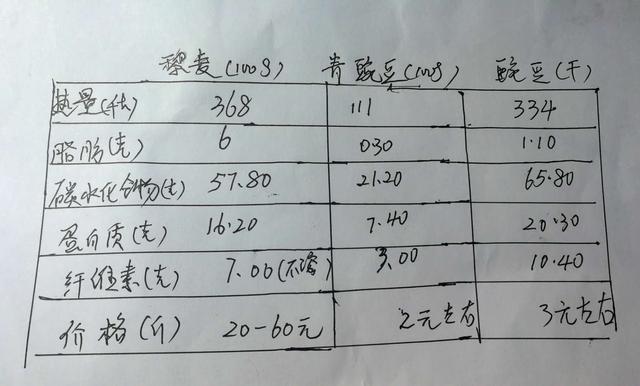 藜麦(100g) 青豌豆(100g) 豌豆(干)
热量(千卡) 368 111 334
脂肪(克) 6 0.30 1.10
碳水化合物(克) 57.80 21.20 65.80
蛋白质(克) 16.20 7.40 20.30
纤维素(克) 7.00(不溶) 3.00 10.40
价格(斤) 20-60元 2元左右 3元左右